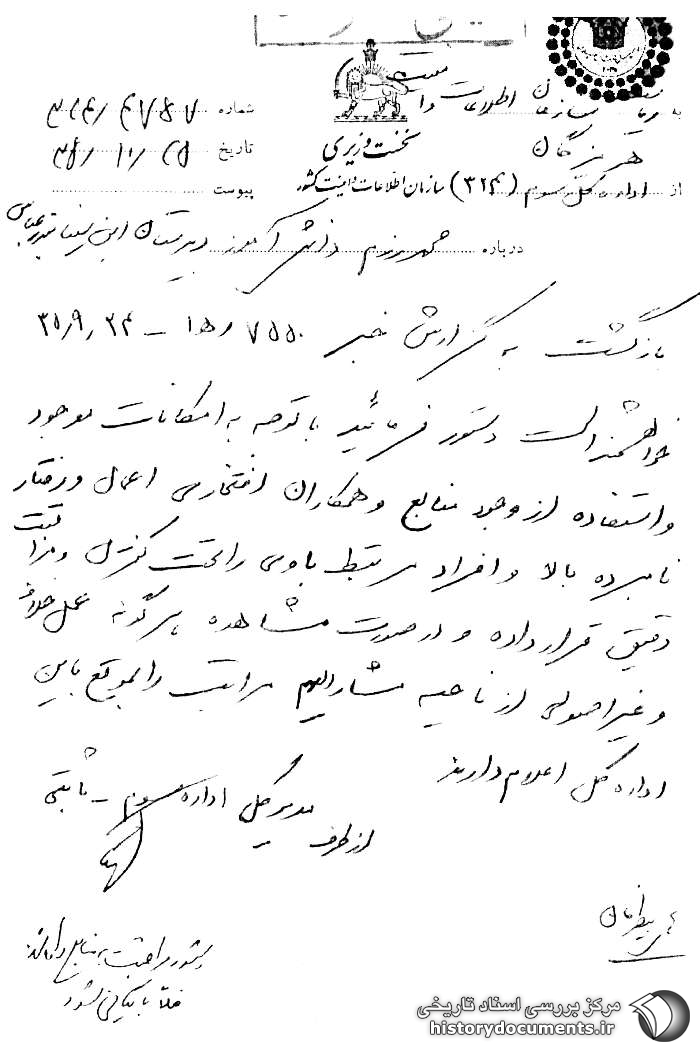 به ریاست سازمان اطلاعات و امنیت
هرمزگان
نخست وزیری
از اداره کل سوم (۳۲۴) سازمان اطلاعات و امنیت کشور
شماره ۳۲۴/۴۷۸۷
تاریخ ۳۵/۱۰/۲۵
پیوست
درباره دانش آموز دبیرستان ابن سینا بندرعباس
بازگشت به گزارش خبر ۷۵۵۰/ﻫ۱۵ – ۳۵/۹/۲۴
خواهشمند است دستور فرمائید با توجه به امکانات موجود
و استفاده از وجود منابع و همکاران افتخاری اعمال و رفتار
نامبرده بالا و افراد مرتبط با وی را تحت کنترل و مراقبت
دقیق قرار داده و در صورت مشاهده هرگونه عمل خلاف
و غیر اصولی از ناحیه مشارالیهم مراتب را بموقع باین
اداره کل اعلام دارند
مدیر کل اداره سوم – ثابتی
از طرف
دستور مراقبت به منابع داده شد
فعلا بایگانی شود
مرکز بررسی اسناد تاریخی
historydocuments.ir